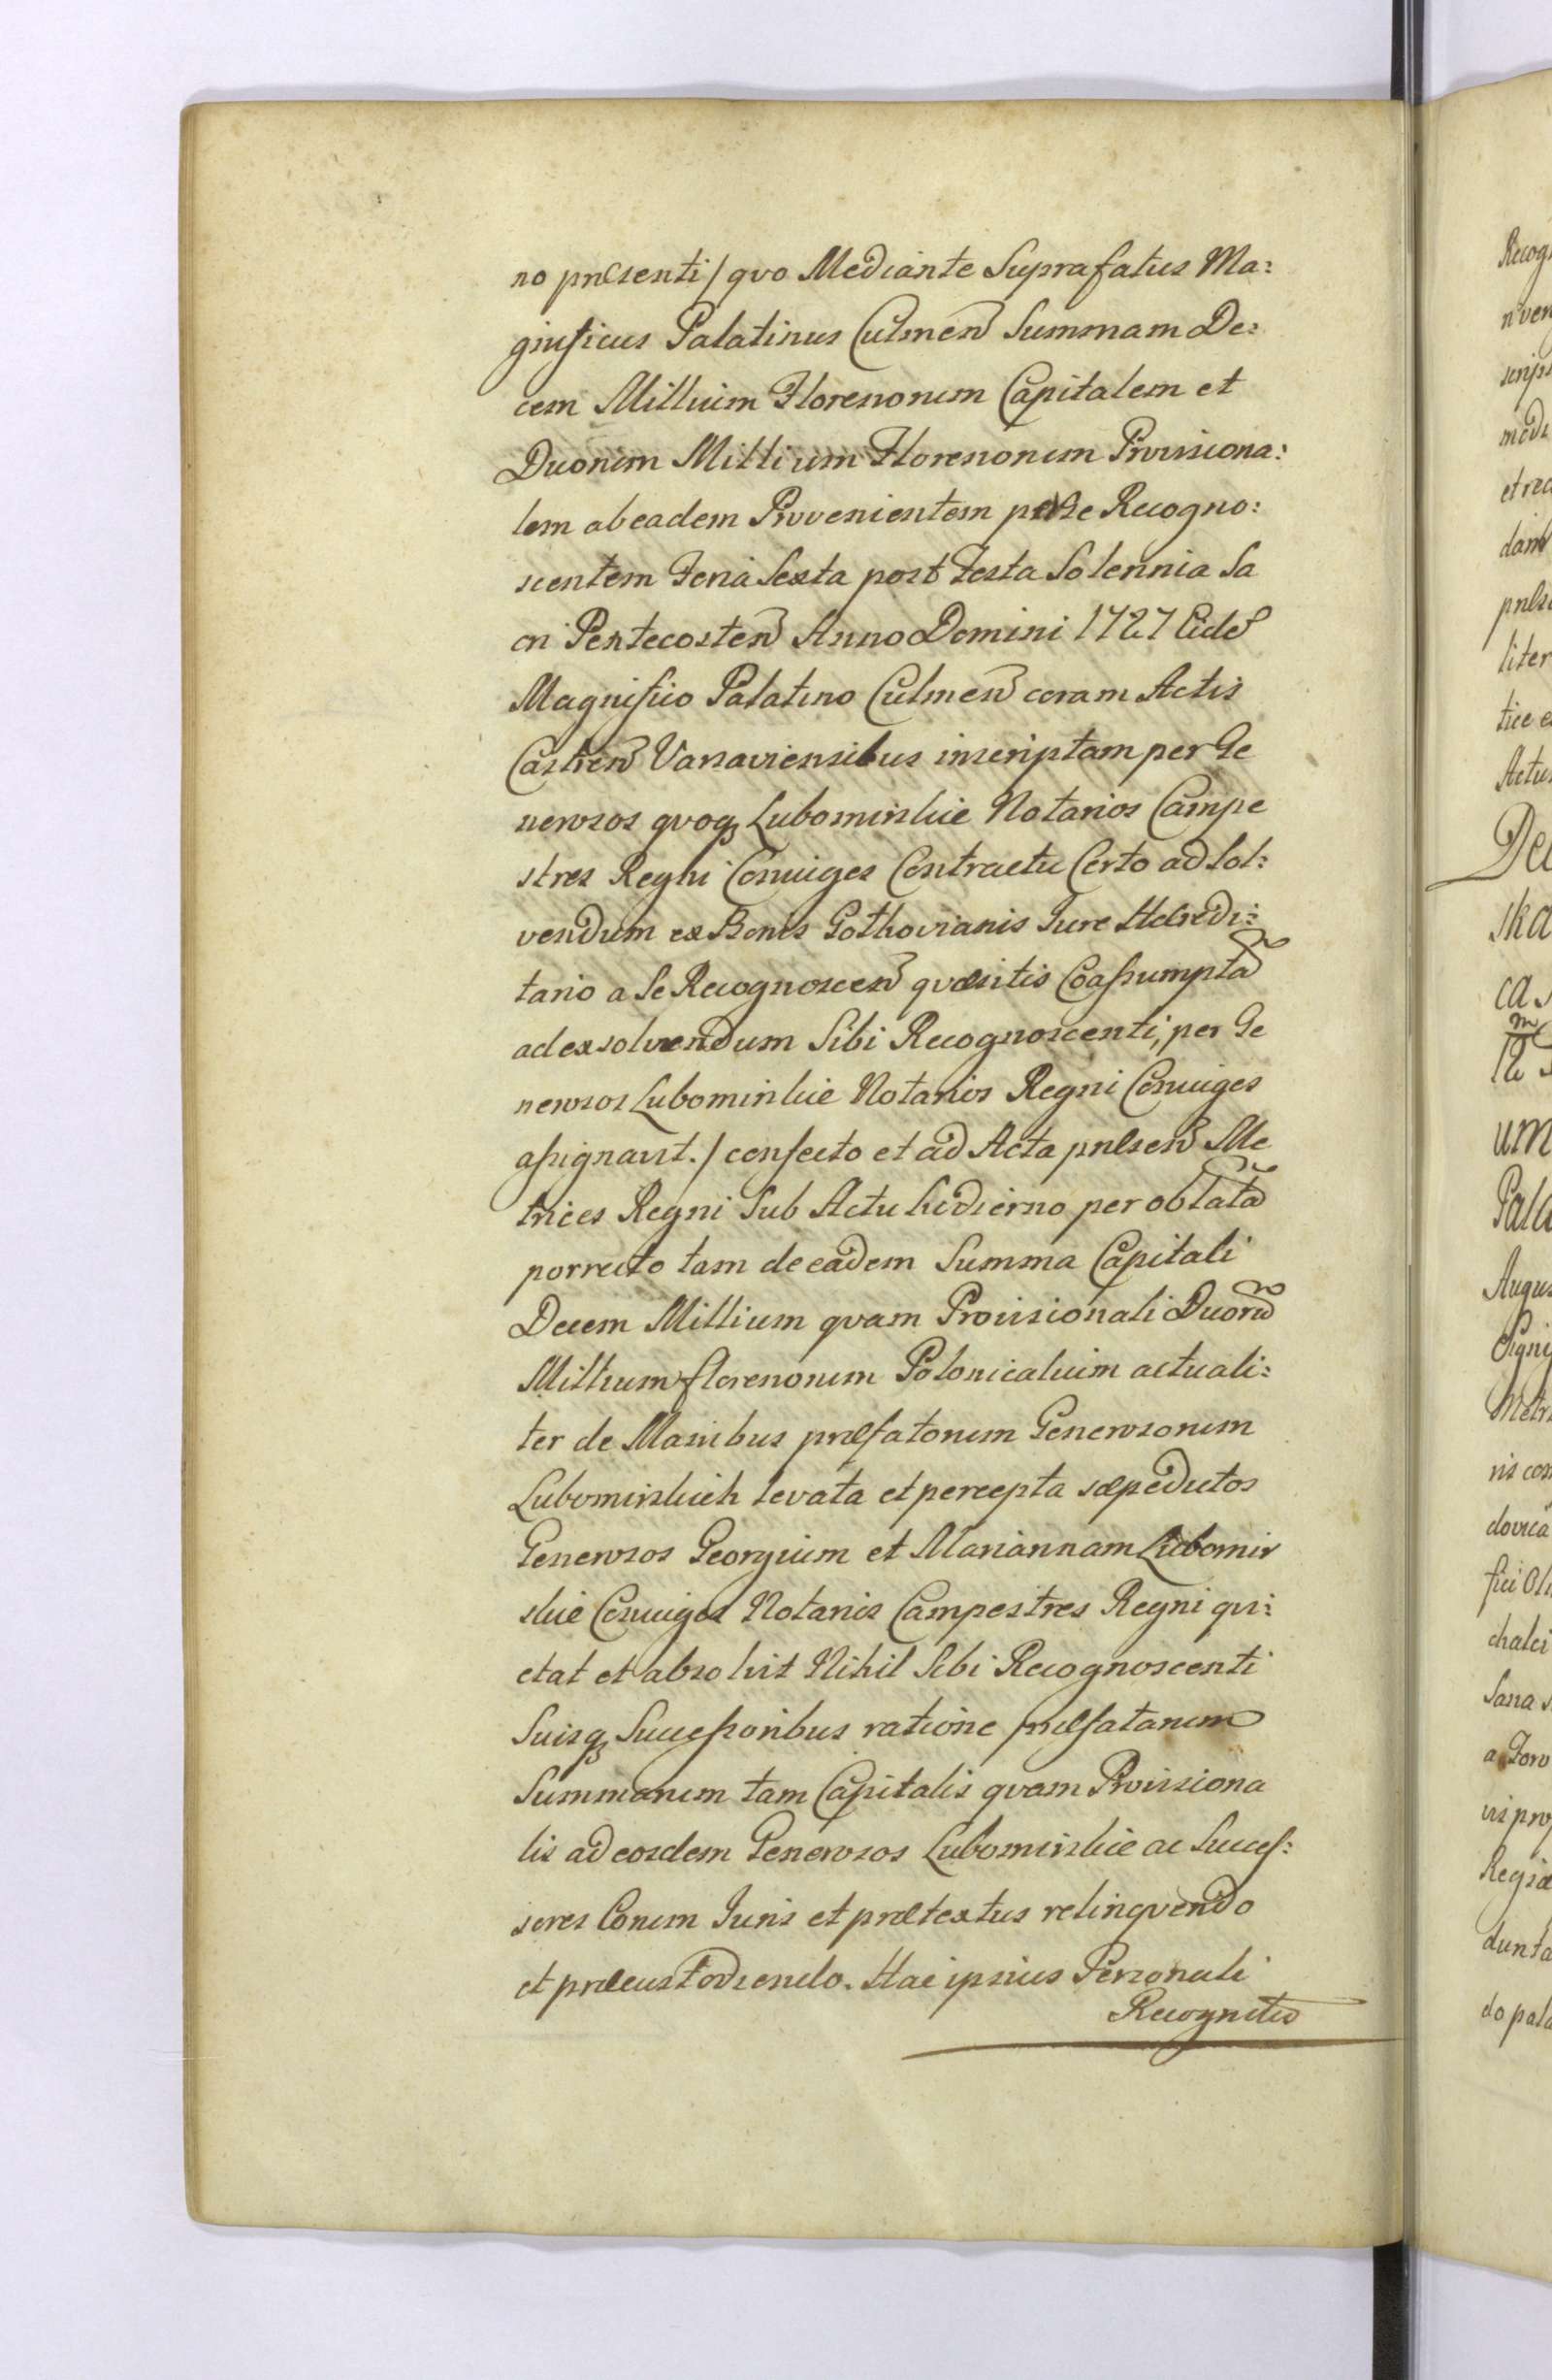 no præsenti / qvo Mediante Suprafatus Ma:
gnificus Palatinus Culmen Summam De:
cem Millium Florenorum Capitalem et
Duorum Millium Florenorum Provisiona:
lem ab eadem Provenientem per se Recogno:
scentem Feria Sexta post Festa Solennia Sa
cri Pentecosten Anno Domini 1727 Eide
Magnifico Palatino Culmen coram Actis
Castren Varsaviensibus inscriptam per Ge
nerosos qvoq Lubomirskie Notarios Campe
stres Regni Coniuges Contractu Certo ad sol:
vendum ex Bonis Gothovianis Jure Hæredi:
tario a Se Recognoscen qvæsitis Coassumpta
ad exsolvendum Sibi Recognoscenti, per Ge
nerosos Lubomirskie Notarios Regni Coniuges
assignavit. / confecto et ad Acta præsen Me
trices Regni Sub Actu hodierno per oblata
porrecto tam de eadem Summa Capitali
Decem Millium qvam Provisionali Duoru
Millium florenorum Polonicalium actuali:
ter de Manibus præfatorum Generosorum
Lubomirskich levata et percepta sæpedictos
Generosos Georgium et Mariannam Lubomir
skie Coniuges Notarios Campestres Regni qvi:
etat et absolvit Nihil Sibi Recognoscenti
Suisq Successoribus ratione præfatarum
Summarum tam Capitalis qvam Provisiona
lis ad eosdem Generosos Lubomirskie ac Succes:
sores Eorum Juris et prætextus relinqvendo
et præcustodiendo. Hac ipsius Personali
Recognitio